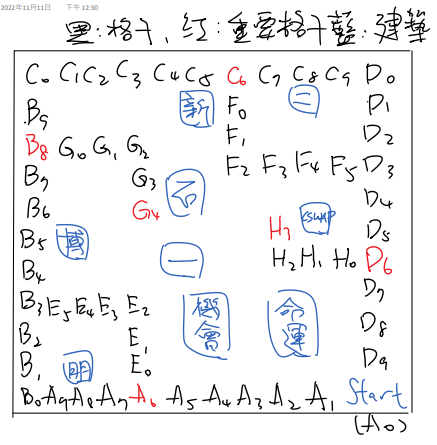 2022年11月11日 下午 12:30
黑:格子,紅:重要格子藍:建築
C0 C1 C2 C3 C4 C5 C6 C7 C8 C9 D0
B9 新 F0 三 D1
F1 D2
B8 G0 G1 G2 F2 F3 F4 F5 D3
B7 G3 石 D4
B6 G4 H3 CSWAP D5
B5 博 H2 H1 H0 D6
B4 一 D7
B3 E5 E4 E3 E2 機會 命運
B2 E1 D8
B1 明 E0 D9
B0 A9 A8 A7 A6 A5 A4 A3 A2 A1 Start
(A0)